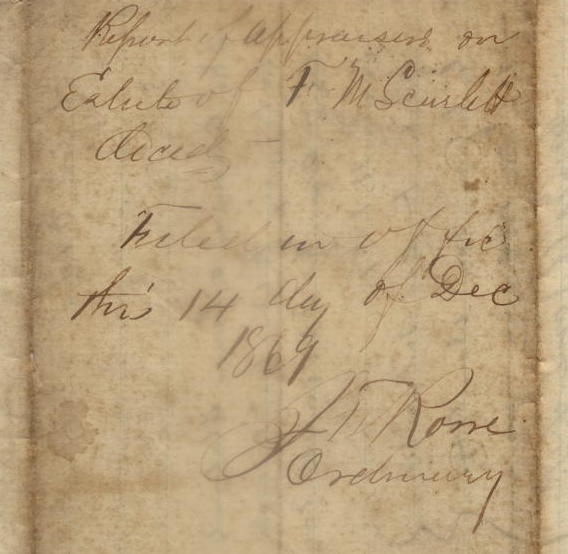 Report of appraisers on
Estate of F M Scarlett
decd
Filed in offic
this 14 day of Dec
1869
Ordinary